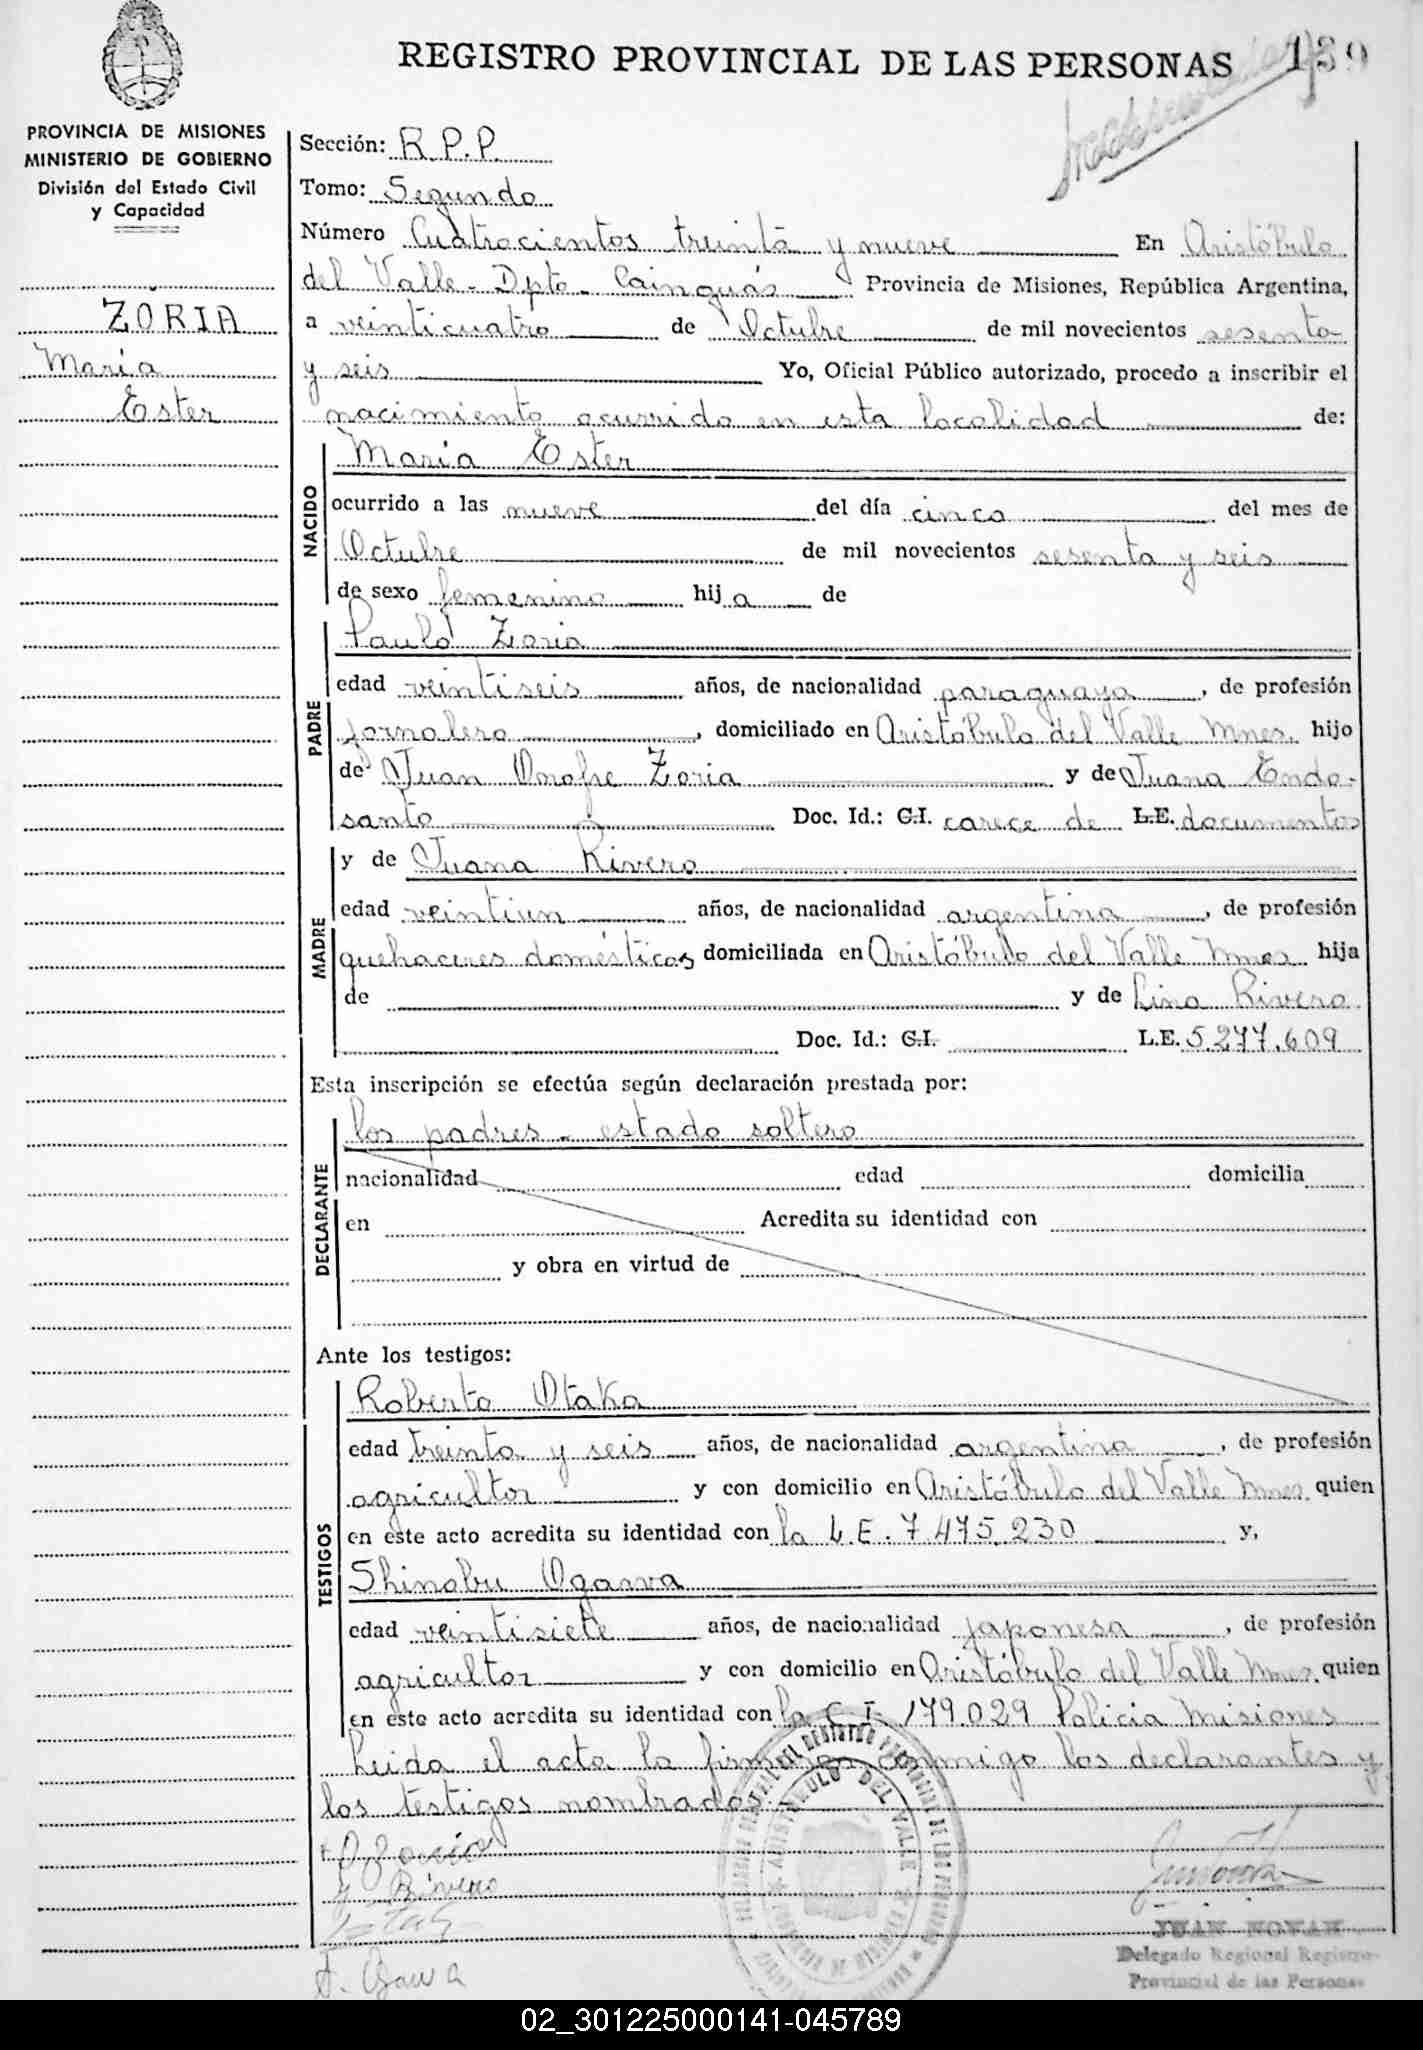 REGISTRO PROVINCIAL DE LAS PERSONAS 139
PROVINCIA DE MISIONES
MINISTERIO DE GOBIERNO
División del Estado Civil
y Capacidad
ZÓRIA
María
Ester
Sección: R.P.P.
Tomo: Segundo
Número Cuatrocientos treinta y nueve En Aristóbulo
del Valle - Dpto. Cainguás Provincia de Misiones, República Argentina,
a veinticuatro de Octubre de mil novecientos sesenta
y seis Yo, Oficial Público autorizado, procedo a inscribir el
nacimiento ocurrido en esta localidad de:
NACIDO
María Ester
ocurrido a las nueve del día cinco del mes de
Octubre de mil novecientos sesenta y seis
de sexo femenino hija de
PADRE
Paulo Zoria
edad veintiseis años, de nacionalidad paraguaya, de profesión
jornalero, domiciliado en Aristóbulo del Valle Mnes. hijo
de Juan Onofre Zoria y de Juana Endo-
santo Doc. Id.: C.I. carece de L.E. documentos
MADRE
y de Juana Rivero
edad veintiun años, de nacionalidad argentina, de profesión
quehaceres domésticos domiciliada en Aristóbulo del Valle Mnes hija
de y de Lina Rivero
Doc. Id.: C.I. L.E. 5.277.609
Esta inscripción se efectúa según declaración prestada por:
DECLARANTE
los padres - estado soltero
nacionalidad edad domicilia
en Acredita su identidad con
y obra en virtud de
Ante los testigos:
TESTIGOS
Roberto Otaka
edad treinta y seis años, de nacionalidad argentina, de profesión
agricultor y con domicilio en Aristóbulo del Valle Mnes. quien
en este acto acredita su identidad con la L.E. 7.475.230 y,
Shinobu Ogawa
edad veintisiete años, de nacionalidad japonesa, de profesión
agricultor y con domicilio en Aristóbulo del Valle Mnes. quien
en este acto acredita su identidad con la C.I. 179.029 Policia Misiones
Leida el acta la firman conmigo los declarantes y
los testigos nombrados
P Zoria
J Rivero
ARISTOBULO DEL VALLE
S. Ogawa
JUAN NOVAK
Delegado Regional Registro
Provincial de las Personas
02_301225000141-045789